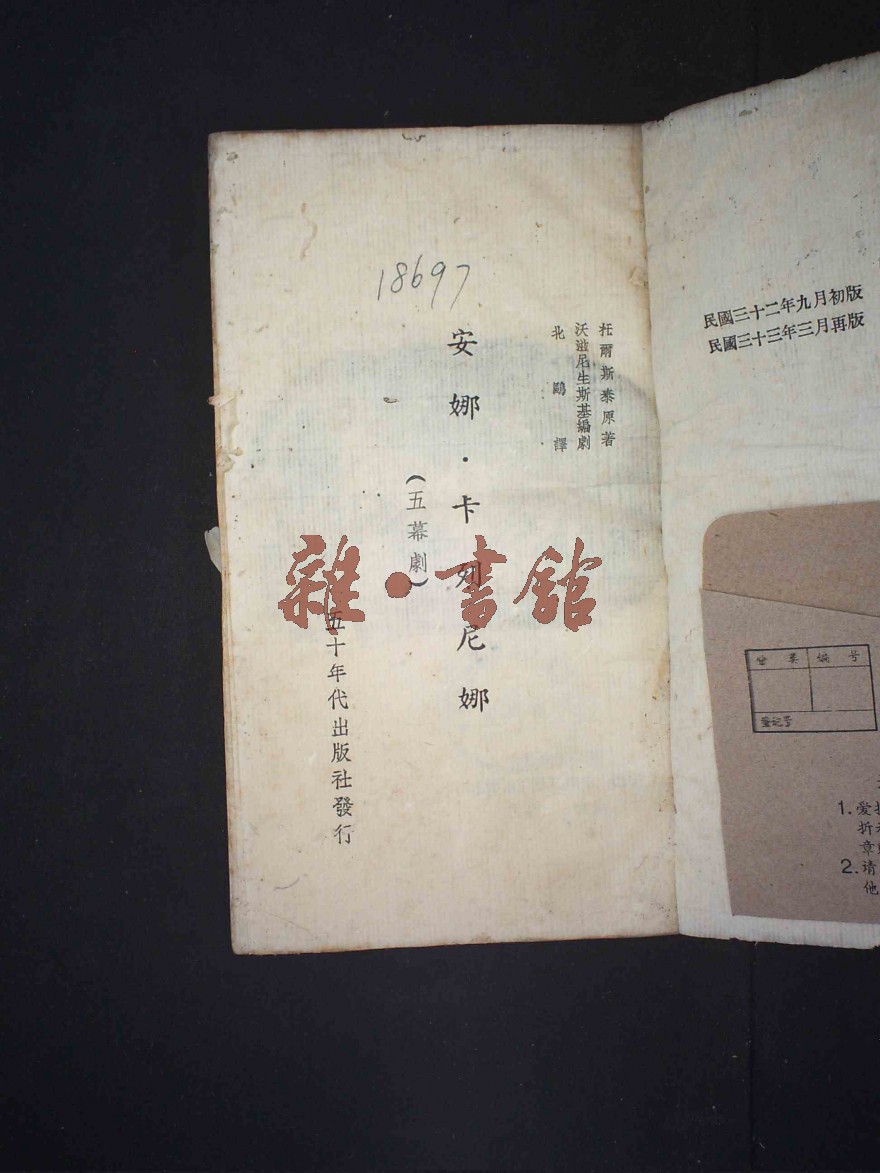 18697
托爾斯泰原著
沃滋尼生斯基編劇
北鷗譯
安娜·卡列尼娜
(五幕劇)
五十年代出版社發行
雜·書館
民國三十二年九月初版
民國三十三年三月再版
登记号
编号
1.爱
折
章
2.请
他